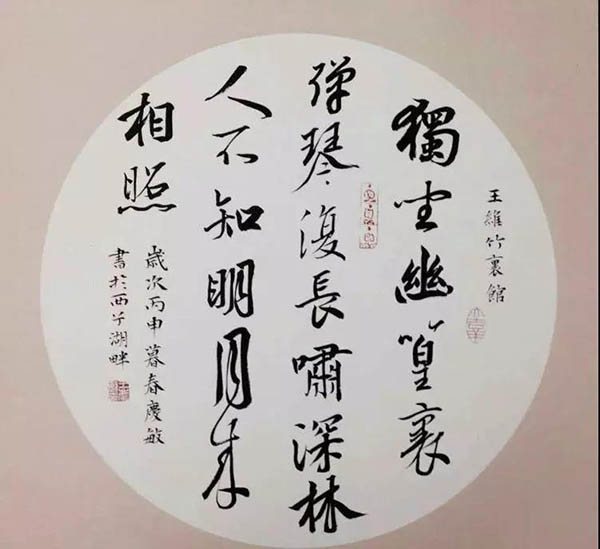 王維竹裏館
獨坐幽篁裏
彈琴復長嘯深林
人不知明月来
相照
歲次丙申暮春慶敏
書於西子湖畔